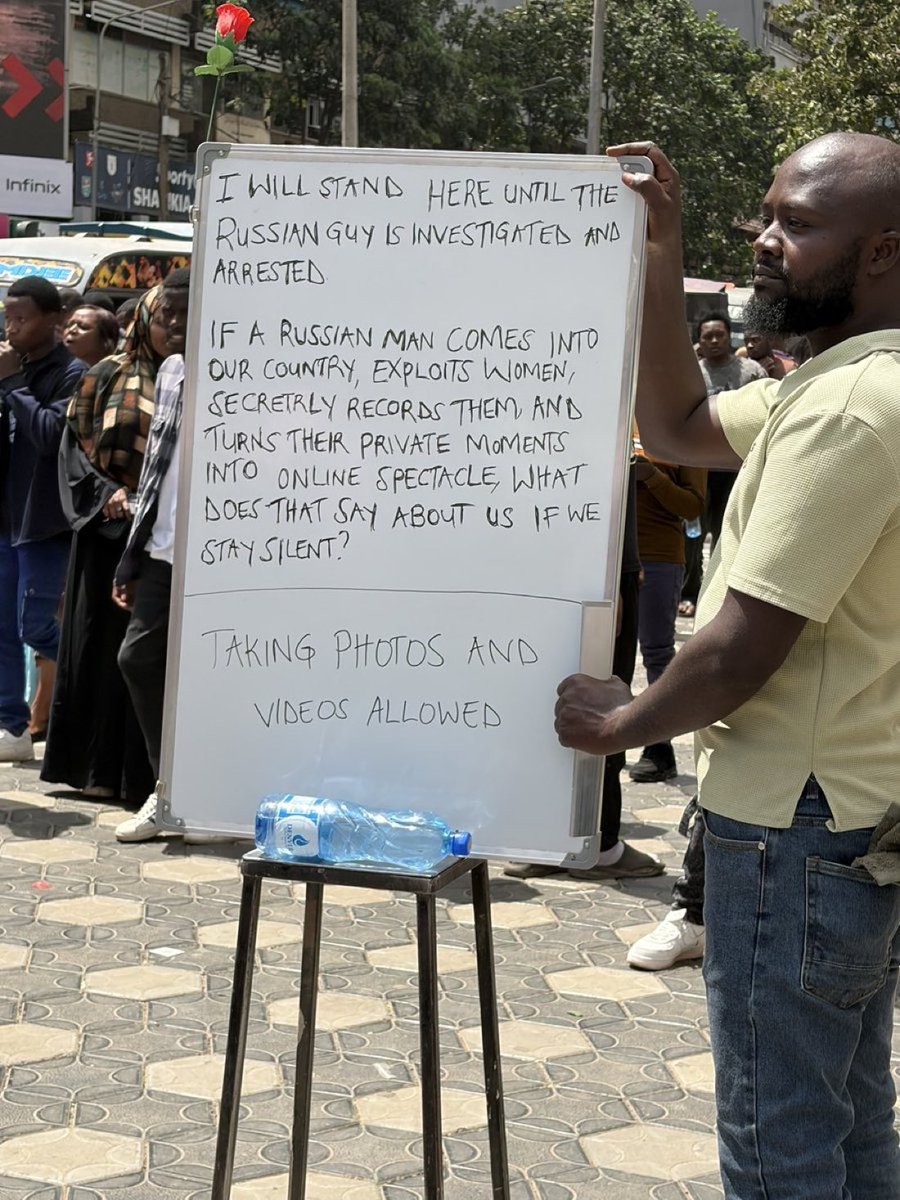 Infinix
Sporty
SHA KIA
I WILL STAND HERE UNTIL THE
RUSSIAN GUY IS INVESTIGATED AND
ARRESTED
IF A RUSSIAN MAN COMES INTO
OUR COUNTRY, EXPLOITS WOMEN,
SECRETRLY RECORDS THEM, AND
TURNS THEIR PRIVATE MOMENTS
INTO ONLINE SPECTACLE, WHAT
DOES THAT SAY ABOUT US IF WE
STAY SILENT?
TAKING PHOTOS AND
VIDEOS ALLOWED